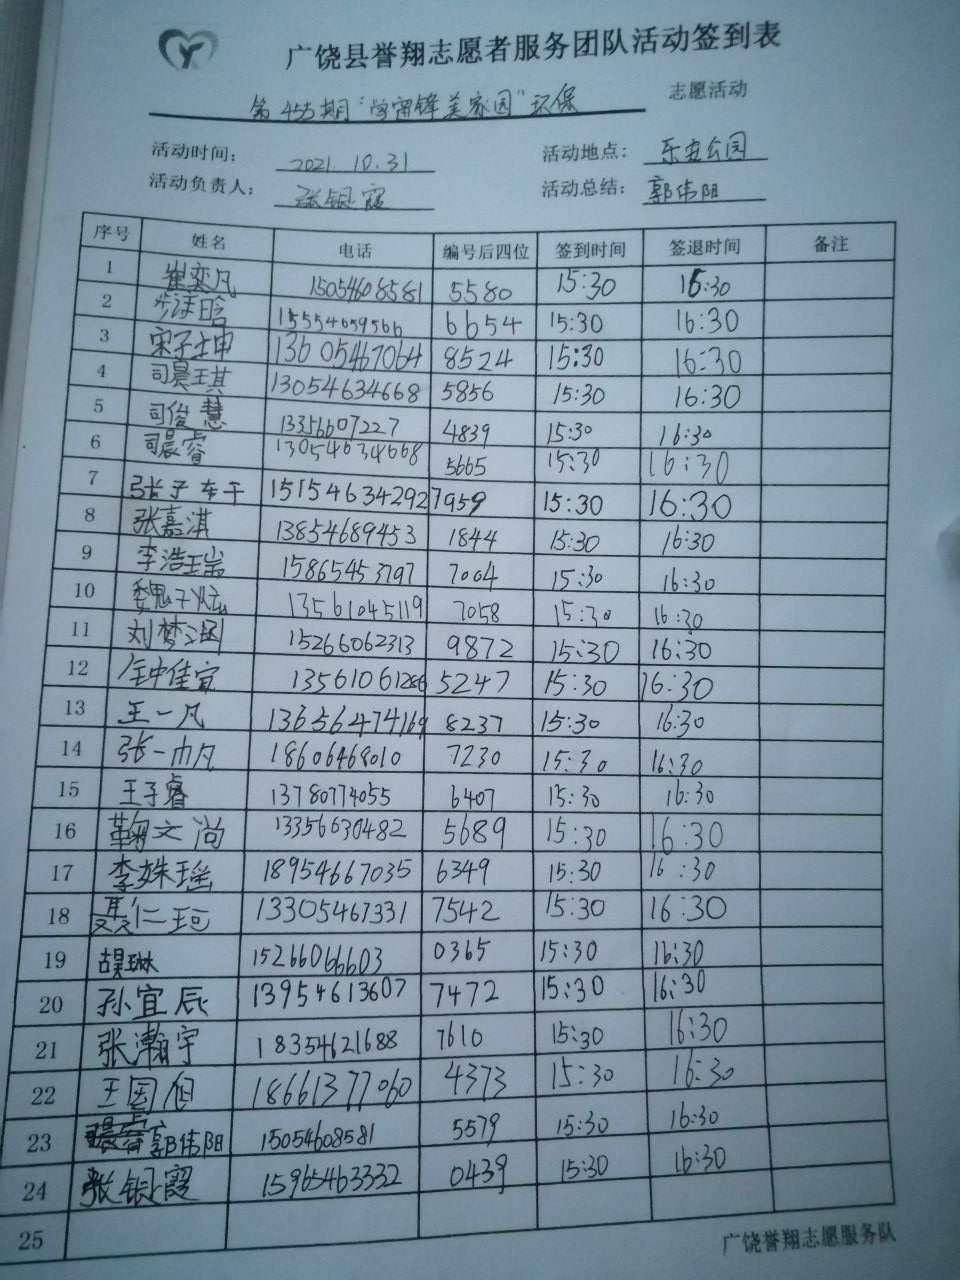 广饶县誉翔志愿者服务团队活动签到表
第455期"学雷锋美家园"环保 志愿活动
活动时间: 2021.10.31 活动地点: 乐安公园
活动负责人: 张银霞 活动总结: 郭伟阳
序号 姓名 电话 编号后四位 签到时间 签退时间 备注
1 崔奕凡 15054608581 5580 15:30 16:30
2 15554659566 6654 15:30 16:30
3 宋子坤 13605467064 8524 15:30 16:30
4 司晨琪 13054634668 5856 15:30 16:30
5 司俊慧 13356607227 4839 15:30 16:30
6 司晨睿 13054634668 5665 15:30 16:30
7 张子轩 15154634292 7959 15:30 16:30
8 张嘉淇 13854689453 1844 15:30 16:30
9 李浩瑞 15865453797 7004 15:30 16:30
10 魏子炫 13561045119 7058 15:30 16:30
11 刘梦涵 15266062313 9872 15:30 16:30
12 佳宜 13561061286 5247 15:30 16:30
13 王一凡 13656474169 8237 15:30 16:30
14 张一帆 18606468010 7230 15:30 16:30
15 王子睿 13780774055 6407 15:30 16:30
16 鞠文尚 13356630482 5689 15:30 16:30
17 李姝瑶 18954667035 6349 15:30 16:30
18 聂仁珂 13305467331 7542 15:30 16:30
19 胡琳 15266066603 0365 15:30 16:30
20 孙宜辰 13954613607 7472 15:30 16:30
21 张瀚宇 18354621688 7610 15:30 16:30
22 王国旭 18661377060 4373 15:30 16:30
23 郭伟阳 15054608581 5579 15:30 16:30
24 张银霞 15965463332 0439 15:30 16:30
25
广饶誉翔志愿服务队